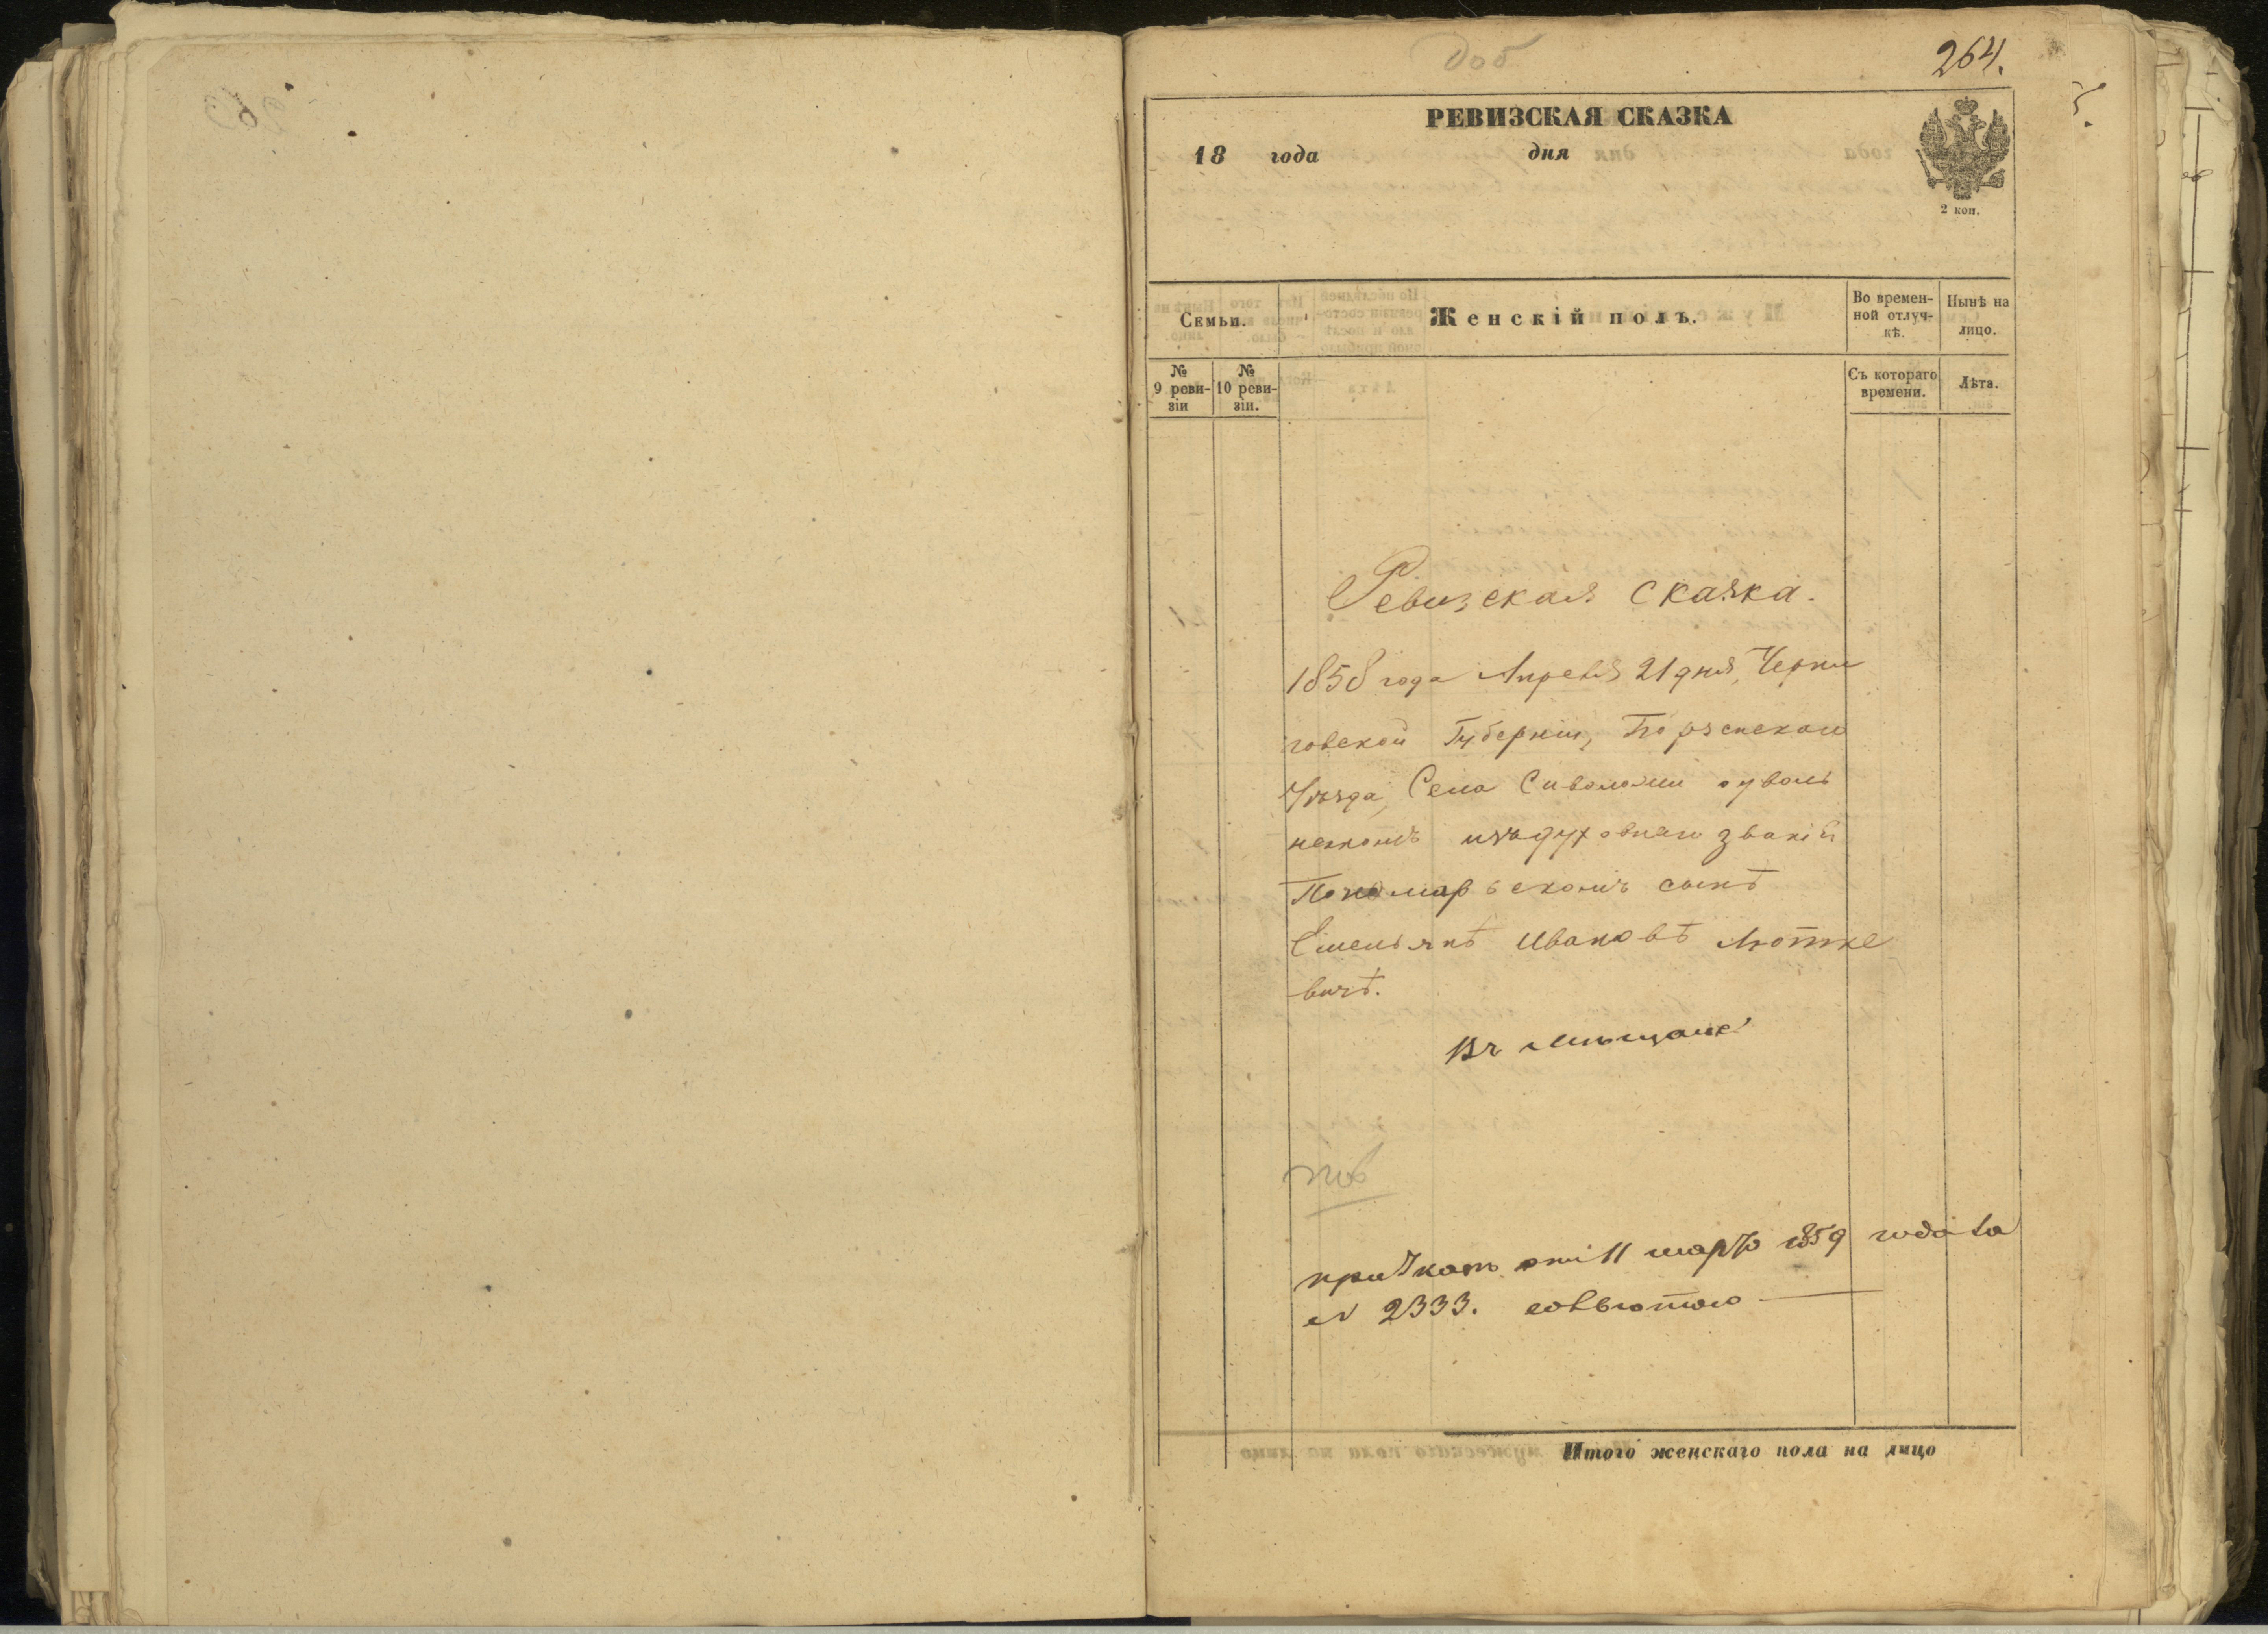 Доб
264.
РЕВИЗСКАЯ СКАЗКА
18 года дня
2 коп.
Семьи.
Женскій полъ.
Во времен-
ной отлуч-
кѣ.
Нынѣ на
лицо.
№
9 реви-
зіи
№
10 реви-
зіи.
Съ котораго
времени.
Лѣта.
Ревизская сказка.
1858 года Апреля 21 дня, Черни
говской Губерніи, Борзенскаго
Уѣзда, Села Сиволожи о уволь
неномъ изъ духовнаго званія
Пономарьскомъ сынѣ
Емельянѣ Ивановѣ Лютке
вичѣ.
Въ мѣщане
приказъ отъ 11 марта 1859 года за
№ 2333.
Итого женскаго пола на лицо